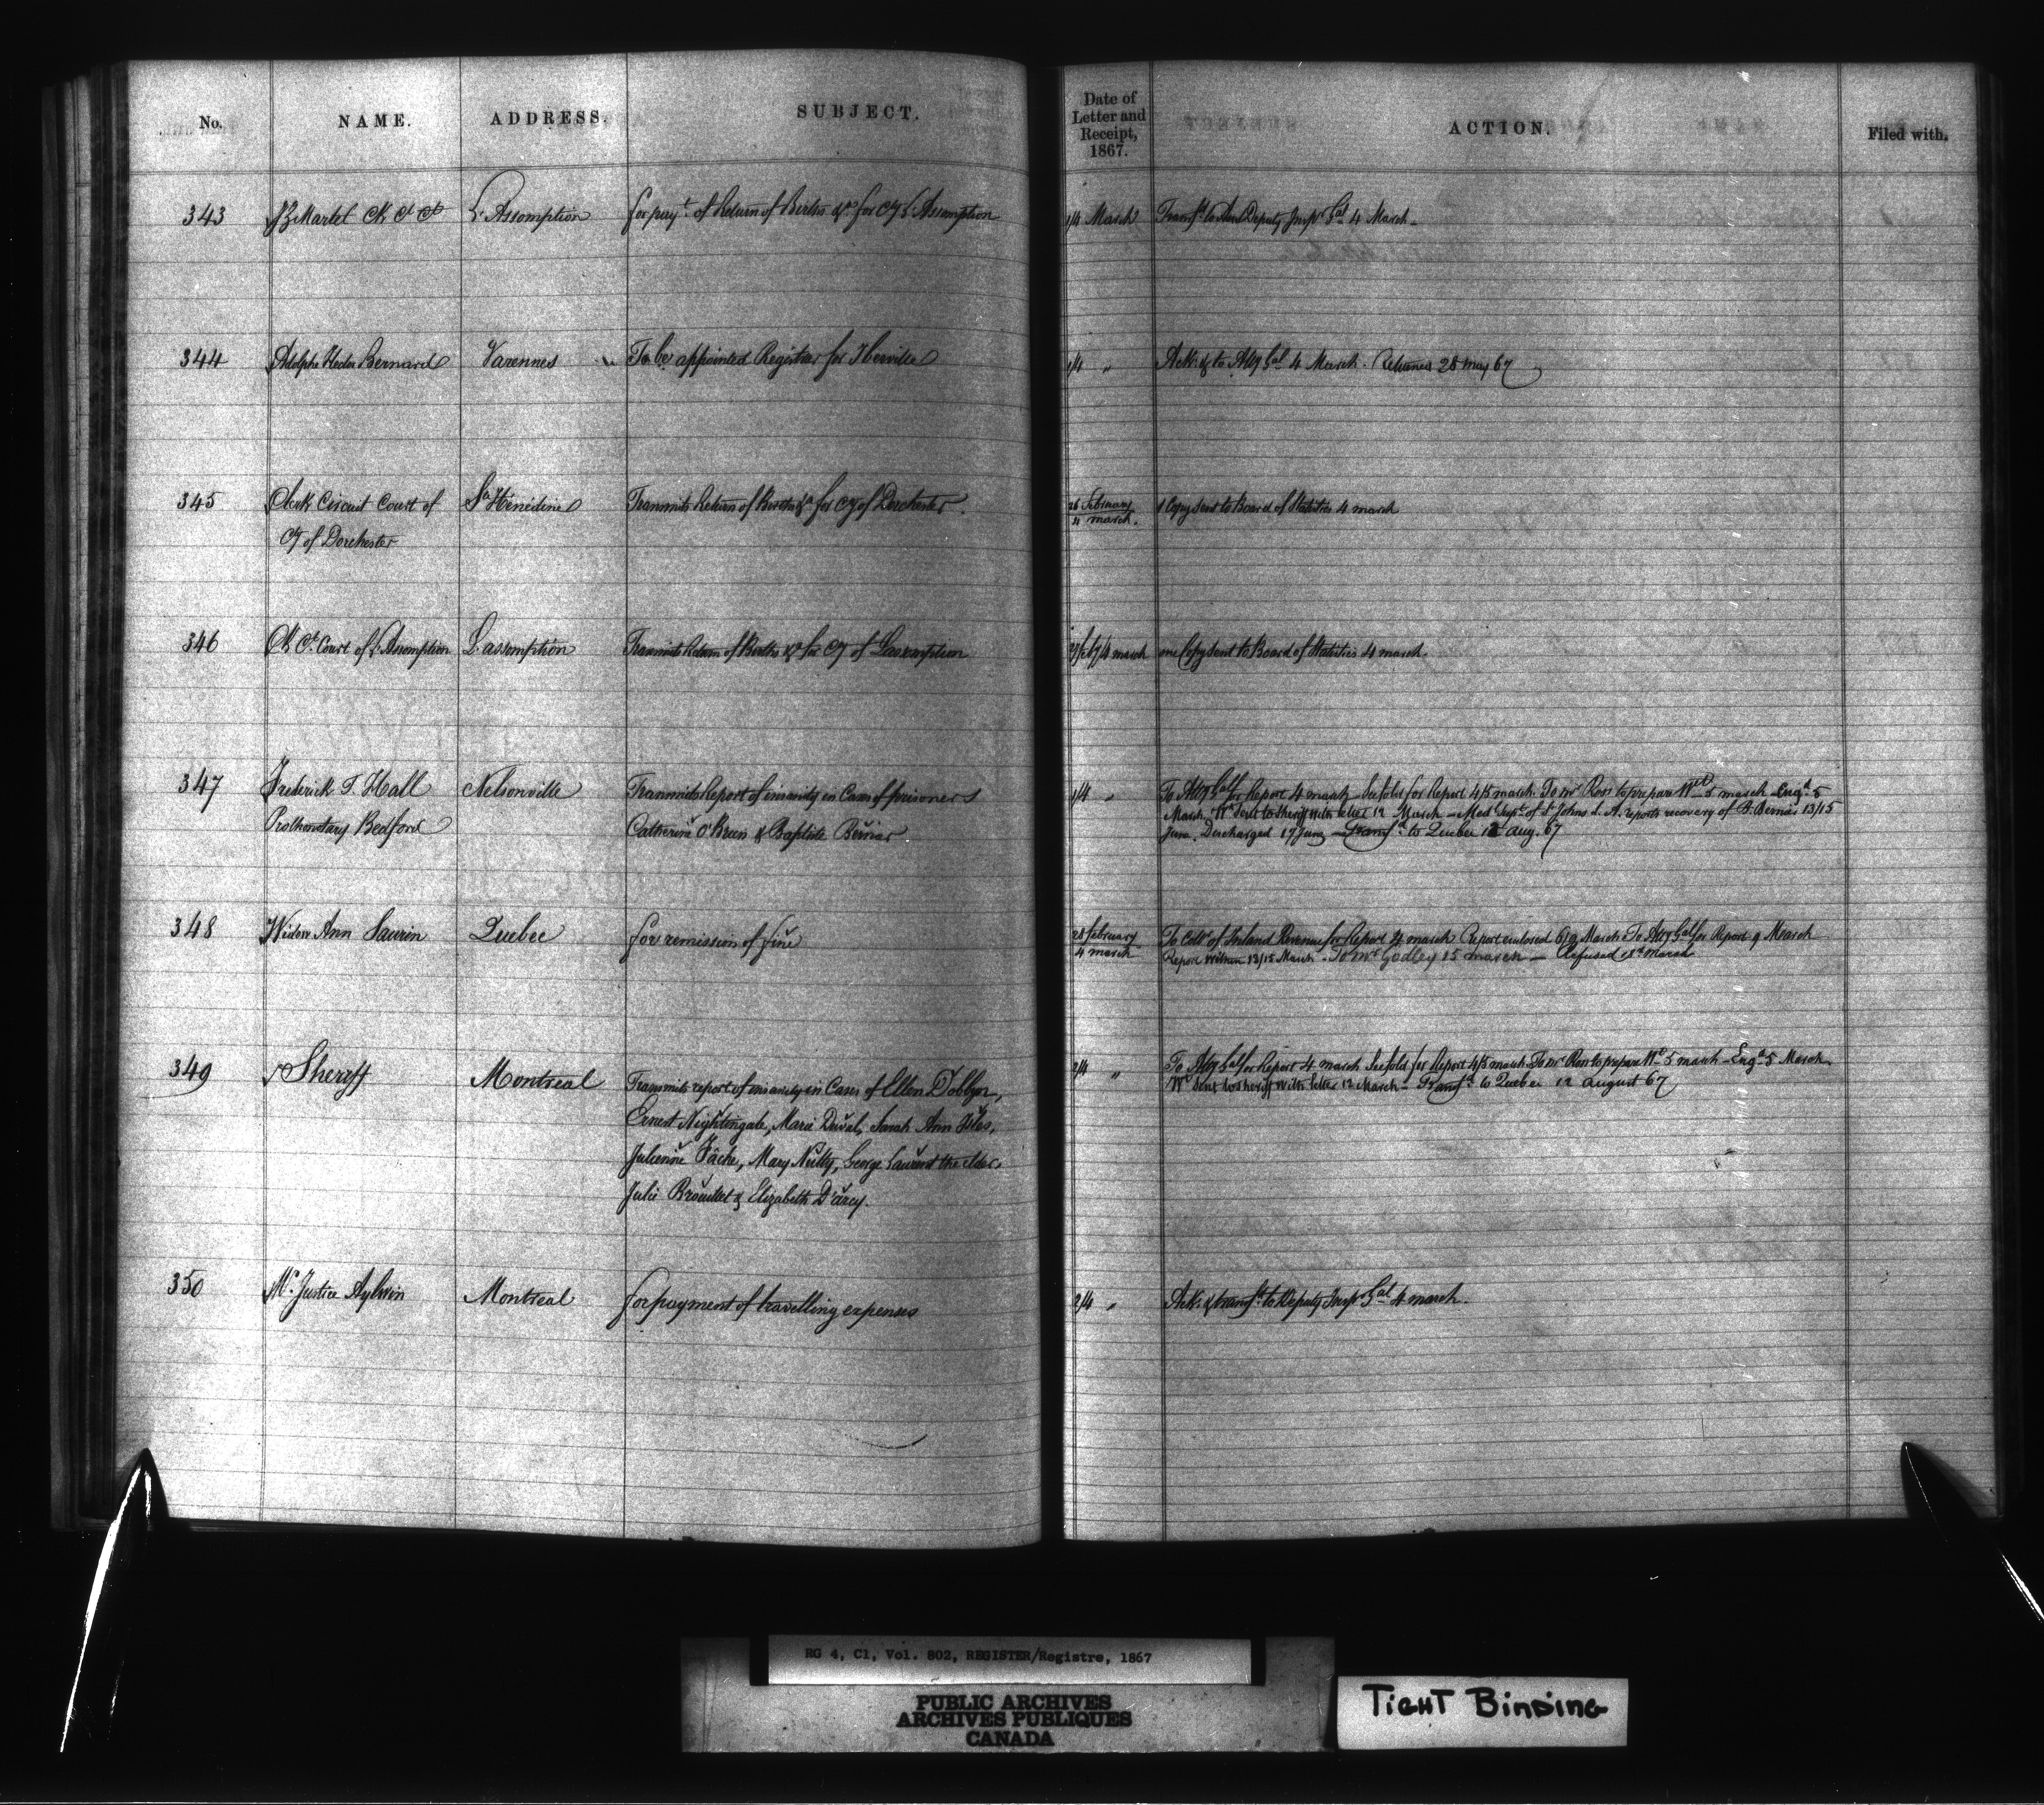 No. NAME. ADDRESS. SUBJECT. Date of Letter and Receipt, 1867. ACTION. Filed with.
343 JZ Martel Ck Ct Ct L'Assomption for payt. of Return of Births &a for Cy L'Assomption 1/4 March Transfd. to Deputy Inspr Gal 4 March.
344 Adolphe Hector Bernard Varennes To be appointed Registrar for Iberville 1/4 " Ack. & to Atty Gal 4 March. Returned 28 May 67
345 Clerk Circuit Court of Ste Hénédine Transmits Return of Births &a for Cy of Dorchester. 26 February 1 Copy sent to Board of Statistics 4 march
Cy of Dorchester 4 march.
346 Ck Ct. Court of L'Assomption L'assomption Transmits Return of Births &a for Cy of Lassomption /4 march one Copy sent to Board of Statistics 4 march.
347 Frederick T. Hall Nelsonville Transmits Report of insanity in Cases of prisoners 1/4 " To Atty Gal for Report 4 march See fold for Report 4/5 march. To Mr Ross to prepare Wt 5 march Engd. 5
Prothonotary Bedford Catherine O'Breen & Baptiste Bernier March. Wt sent to Sheriff with letter 12 March - Med. Supt. of St Johns L. A. reports recovery of B. Bernier 13/15
June. Discharged 17 June - Transfd to Quebec 12 aug. 67
348 Widow Ann Laurin Quebec for remission of fine 28 February To Collr of Inland Revenue for Report 4 march Report enclosed 6/9 March To Atty Gal for Report 9 March
4 march Report within 13/15 March. To Mr Godley 15 march - Refused 18 March
349 Sheriff Montreal Transmits report of insanity in Cases of Ellen Dobbyn, 2/4 " To Atty Gal for Report 4 march See fold for Report 4/5 march To Mr Ross to prepare Wt 5 march - Engd. 5 March
Ernest Nightingale, Marie Duval, Sarah Ann Isles, Wt sent to Sheriff with letter 12 March - Transfd to Quebec 12 August 67
Julienne Tâche, Mary Nulty, George Laurent the elder,
Julie Brouillet & Elizabeth D'arcy.
350 Mr. Justice Aylwin Montreal for payment of travelling expenses 2/4 " Ack. & transfd. to Deputy Inspr Gal 4 march.
RG 4, C1, Vol. 802, REGISTER/Registre, 1867
PUBLIC ARCHIVES
ARCHIVES PUBLIQUES
CANADA
TIGHT BINDING